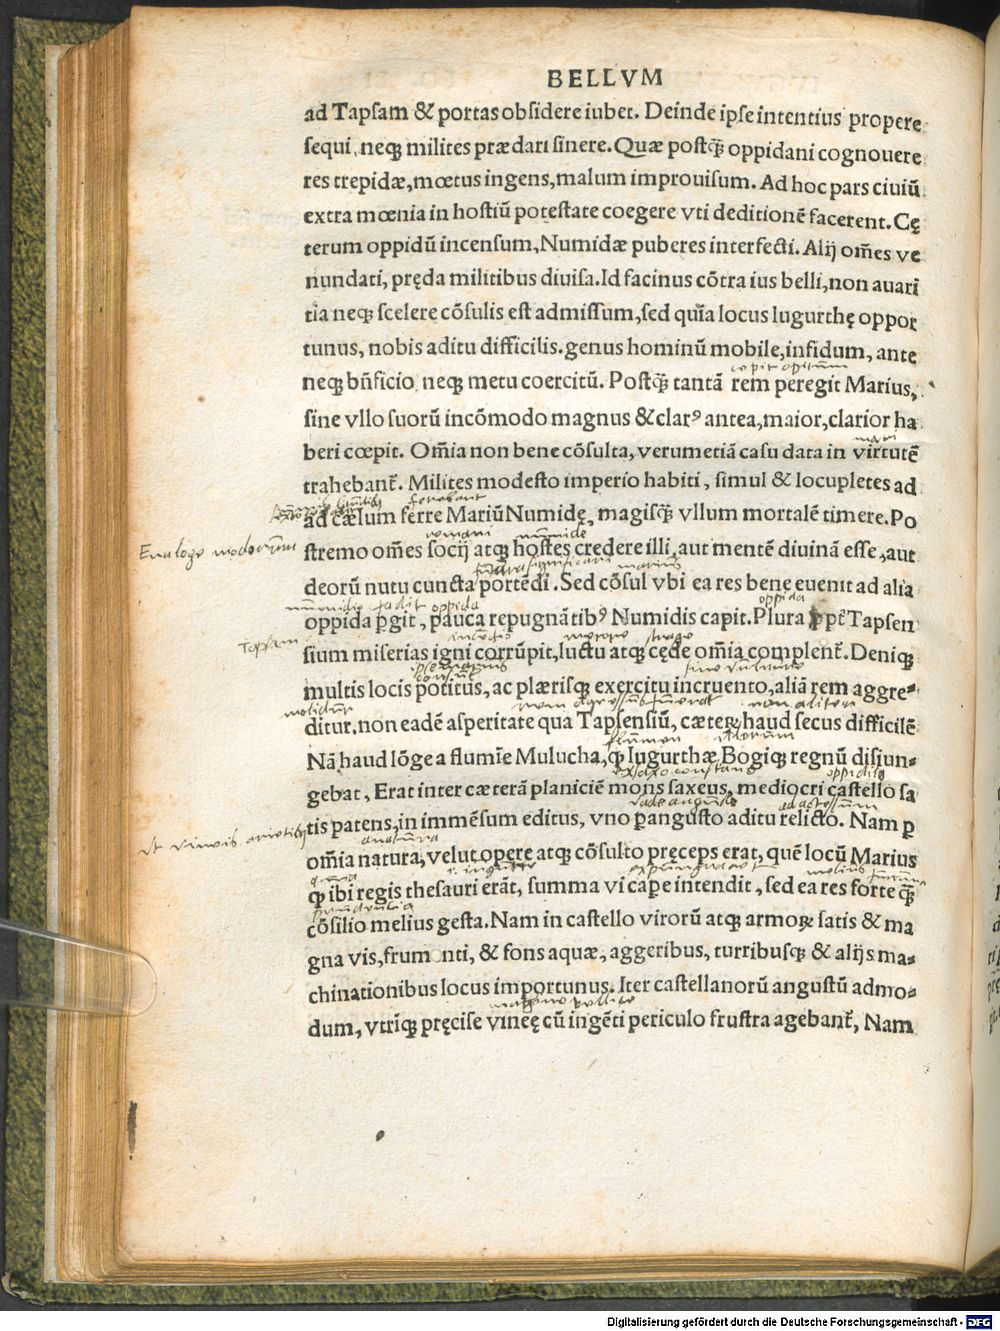 BELLVM
ad Tapſam & portas obſidere iubet. Deinde ipſe intentius propere
ſequi, neqꝫ milites prædari ſinere. Quæ poſtq̃ oppidani cognouere
res trepidæ, mœtus ingens, malum improuiſum. Ad hoc pars ciuiũ
extra mœnia in hoſtiũ poteſtate coegere vti deditionẽ facerent. Cę
terum oppidũ incenſum, Numidæ puberes interfecti. Alij om̃es ve
nundati, pręda militibus diuiſa. Id facinus cõtra ius belli, non auari
tia neqꝫ ſcelere cõſulis eſt admiſſum, ſed quĩa locus Iugurthę oppor
tunus, nobis aditu difficilis. genus hominũ mobile, infidum, ante
cepit
neqꝫ bñficio neqꝫ metu coercitũ. Poſtq̃ tantã rem peregit Marius,
ſine vllo ſuorũ incõmodo magnus & clarꝰ antea, maior, clarior ha
beri cœpit. Om̃ia non bene cõſulta, verumetiã caſu data in virtutẽ
trahebant᷑. Milites modeſto imperio habiti, ſimul & locupletes ad
ferebant
ad cælum ferre Mariũ Numidę, magiſq̃ vllum mortalẽ timere. Po
romani numide
ſtremo om̃es ſocij atqꝫ hoſtes credere illi, aut mentẽ diuinã eſſe, aut
significari marius
deorũ nutu cuncta portẽdi. Sed cõſul vbi ea res bene euenit ad alia
oppida oppida
oppida ꝑgit, pauca repugnãtibꝰ Numidis capit. Plura ꝓpt᷑ Tapſen
Tapsam
ſium miſerias igni corrũpit, luctu atqꝫ cęde om̃ia complent᷑. Deniqꝫ
sine vulnere
multis locis potitus, ac plæriſqꝫ exercitu incruento, aliã rem aggre⸗
non aliter
ditur. non eadẽ aſperitate qua Tapſenſiũ, cæteꝝ haud ſecus difficilẽ
flumen illorum
Nã haud lõge a flumĩe Mulucha, qꝫ Iugurthæ Bogiqꝫ regnũ diſiun⸗
ex saxo constans
gebat, Erat inter cæterã planiciẽ mons ſaxeus, mediocri caſtello ſa
tis patens, in immẽſum editus, vno ꝑanguſto aditu relicto. Nam ꝑ
om̃ia natura, velut opere atqꝫ cõſulto pręceps erat, quẽ locũ Marius
melius
qꝫ ibi regis theſauri erãt, ſumma vi caꝑe intendit, ſed ea res forte q̃
cõſilio melius geſta. Nam in caſtello virorũ atqꝫ armoꝝ ſatis & ma
gna vis, frumenti, & fons aquæ, aggeribus, turribuſqꝫ & alijs ma⸗
chinationibus locus importunus. Iter caſtellanorũ anguſtũ admo⸗
dum, vtrĩqꝫ pręciſe vineę cũ ingẽti periculo fruſtra agebant᷑, Nam
Digitalisierung gefördert durch die Deutsche Forschungsgemeinschaft - DFG